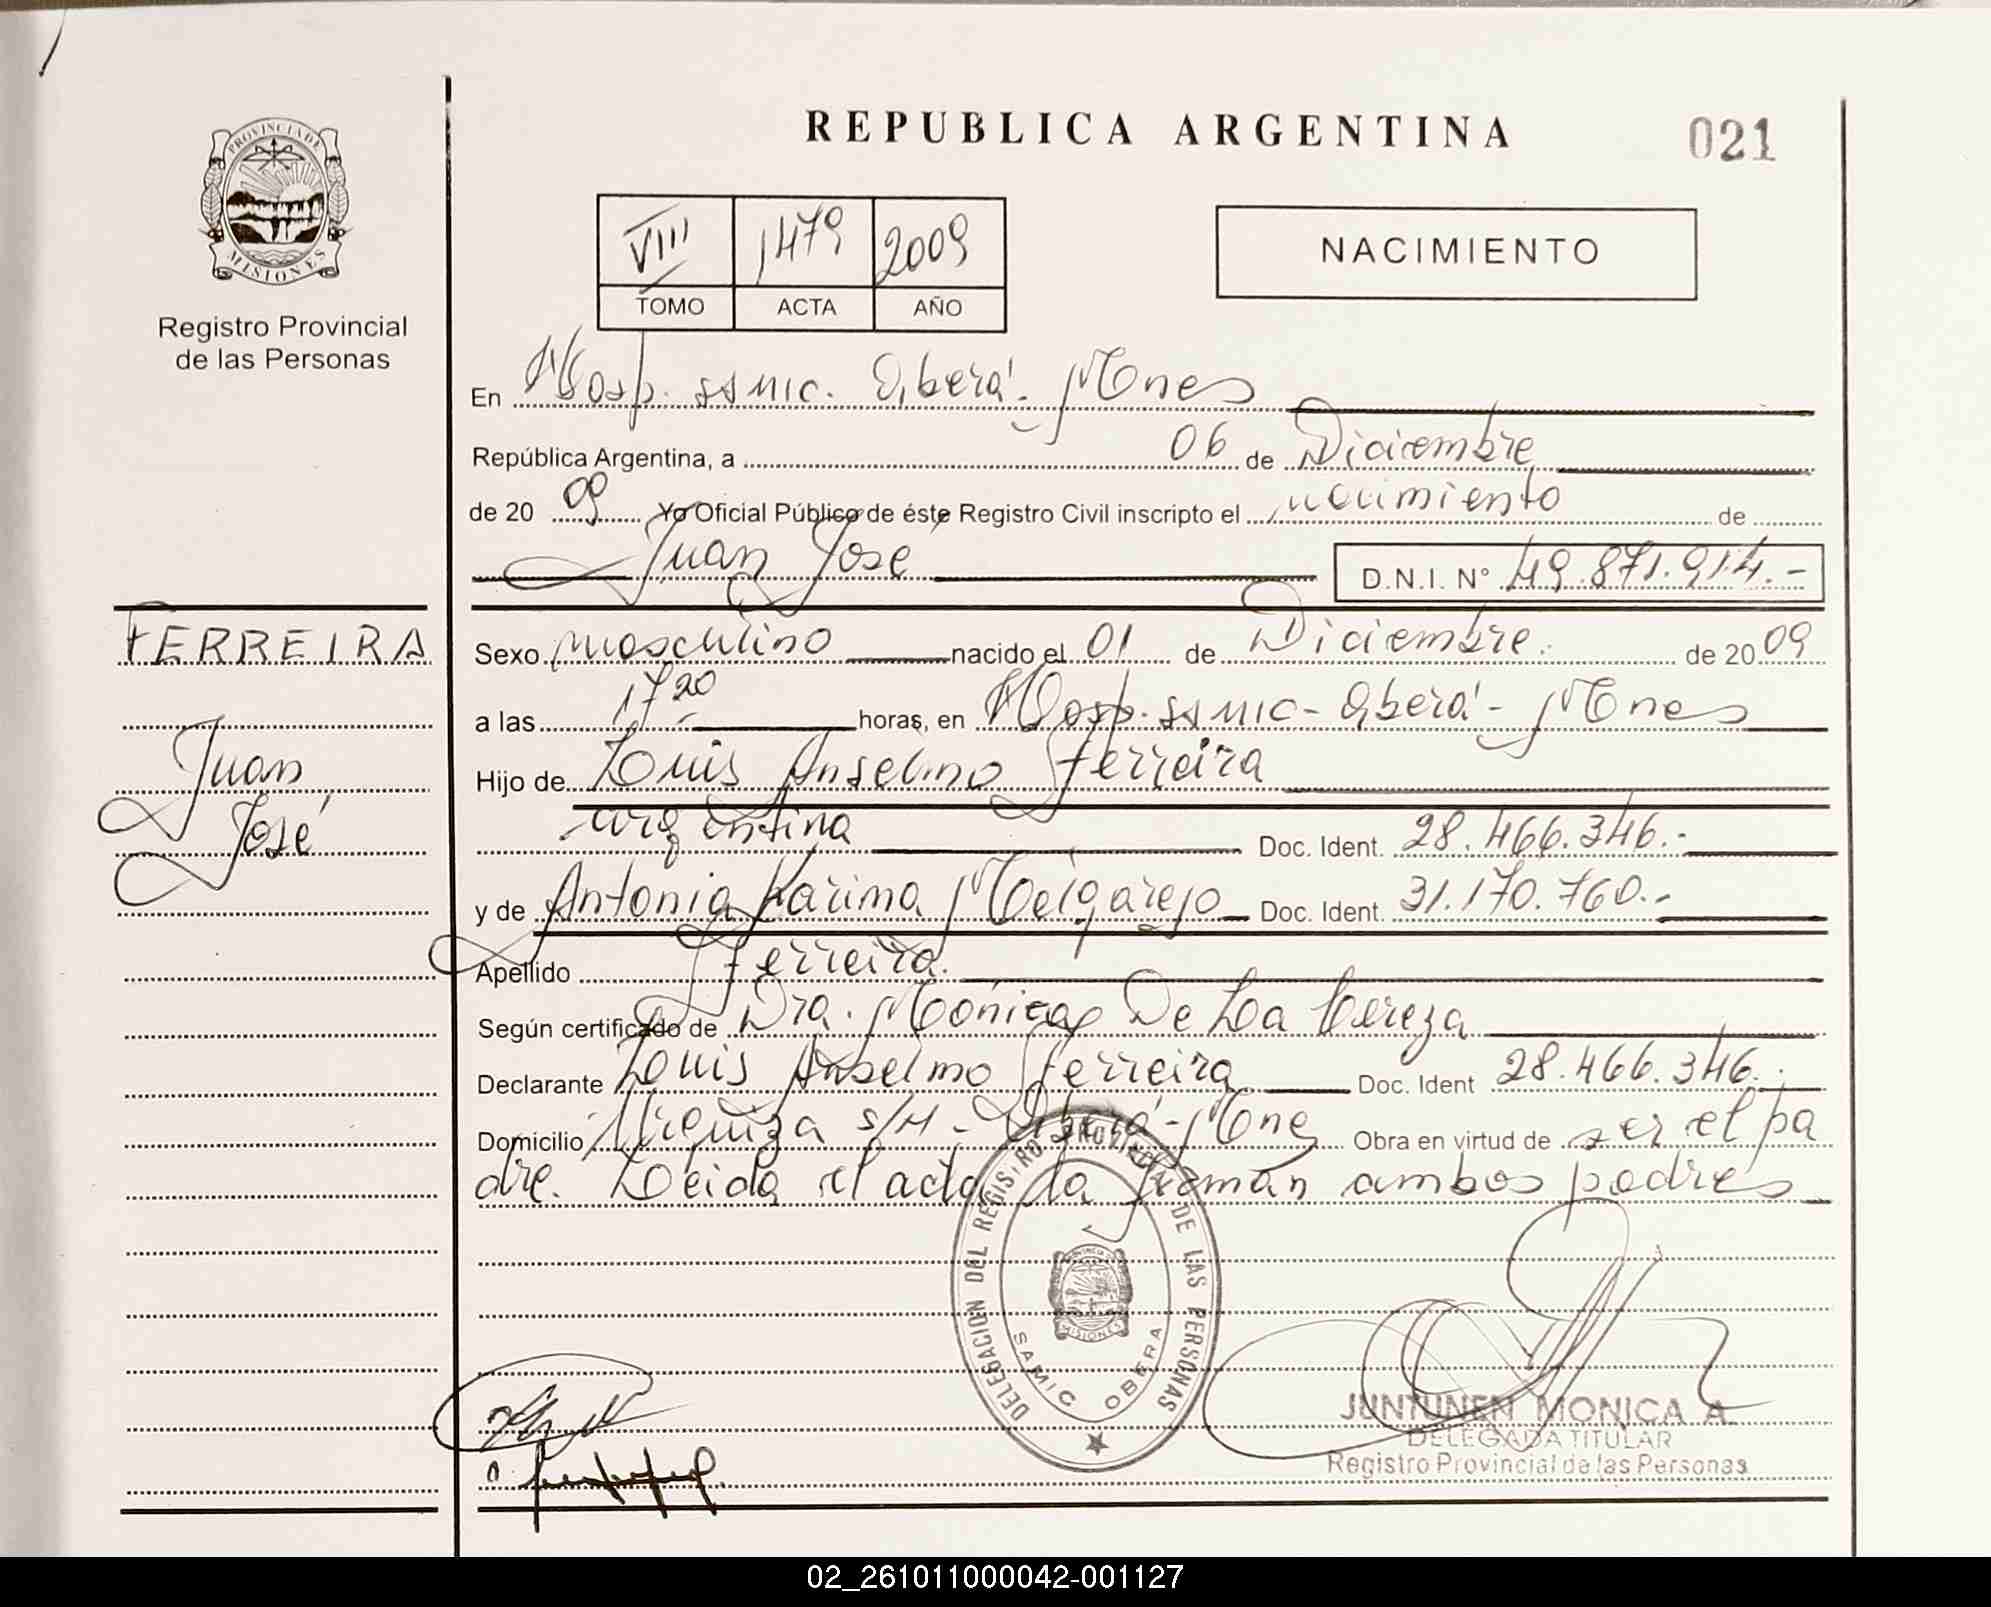 REPUBLICA ARGENTINA
021
PROVINCIA DE
MISIONES
Registro Provincial
de las Personas
VIII 1479 2009
TOMO ACTA AÑO
NACIMIENTO
En Hosp. SAMIC. Oberá - Mnes
República Argentina, a 06 de Diciembre
de 20 09 Yo Oficial Público de éste Registro Civil inscripto el nacimiento de
Juan José
D.N.I. N° 49.871.914.-
FERREIRA
Juan
José
Sexo masculino nacido el 01 de Diciembre. de 20 09
a las 17 20 horas, en Hosp. SAMIC - Oberá - Mnes
Hijo de Luis Anselmo Ferreira
argentina Doc. Ident. 28.466.346.-
y de Antonia Karina Melgarejo Doc. Ident. 31.170.760.-
Apellido Ferreira.
Según certificado de Dra. Mónica De La Cereza
Declarante Luis Anselmo Ferreira Doc. Ident 28.466.346.
Domicilio s/N - Oberá - Mnes Obra en virtud de ser el pa
dre. Leida el acta la firman ambos padres
DELEGACION DEL REGISTRO PROVINCIAL DE LAS PERSONAS
MISIONES
SAMIC OBERA
JUNTUNEN MONICA A.
DELEGADA TITULAR
Registro Provincial de las Personas
02_261011000042-001127